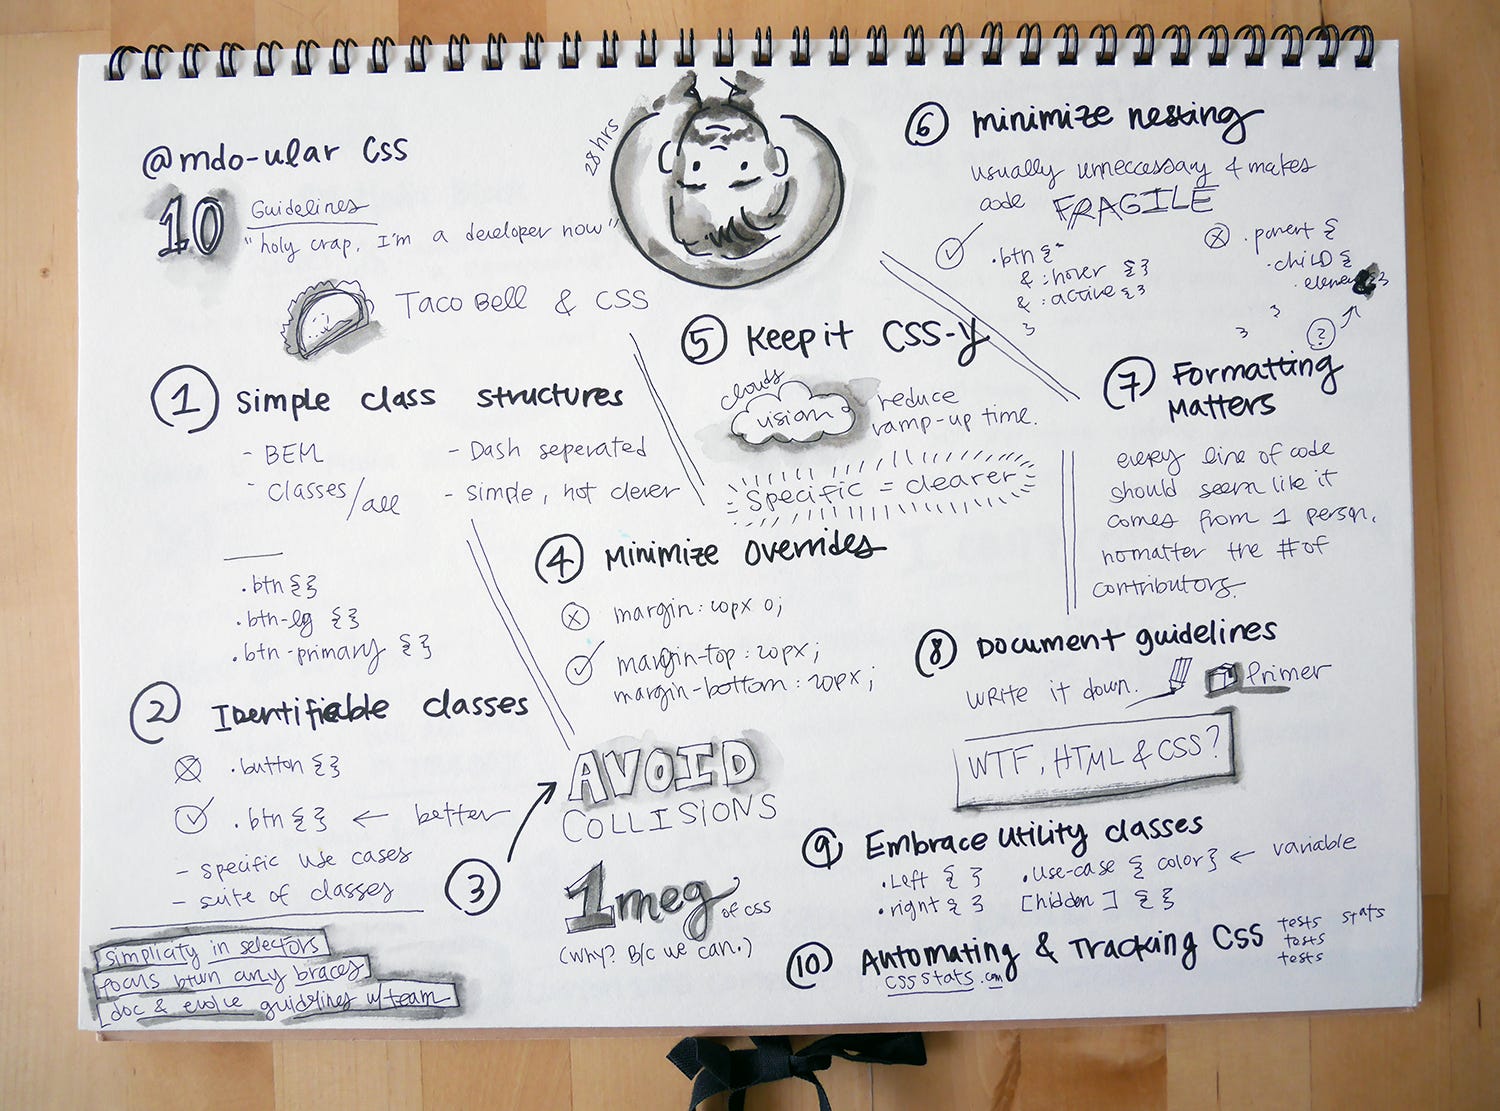 @mdo-ular CSS
10 Guidelines
"holy crap, I'm a developer now"
28hrs
Taco Bell & CSS
1 Simple class structures
- BEM
- classes/all
- Dash seperated
- simple, not clever
.btn {}
.btn-lg {}
.btn-primary {}
2 Identifiable classes
.button {}
.btn {} ← better
- specific use cases
- suite of classes
simplicity in selectors
focus btwn curly braces
doc & evolve guidelines w/team
3 → AVOID
COLLISIONS
1meg of css
(why? B/c we can.)
4 Minimize overrides
margin: 20px 0;
margin-top: 20px;
margin-bottom: 20px;
5 Keep it CSS-y
clouds
vision
reduce
ramp-up time.
Specific = clearer
6 minimize nesting
usually unneccessary & makes
code FRAGILE
.btn {
& :hover {}
& :active {}
}
.parent {
.child {
.element {}
}
}
?
7 Formatting
Matters
every line of code
should seem like it
comes from 1 person,
no matter the # of
contributors.
8 Document guidelines
write it down.
Primer
WTF, HTML & CSS?
9 Embrace utility classes
.left { } .use-case { color} ← variable
.right { } [hidden] { }
10 Automating & Tracking CSS
cssstats.com
tests stats
tests
tests